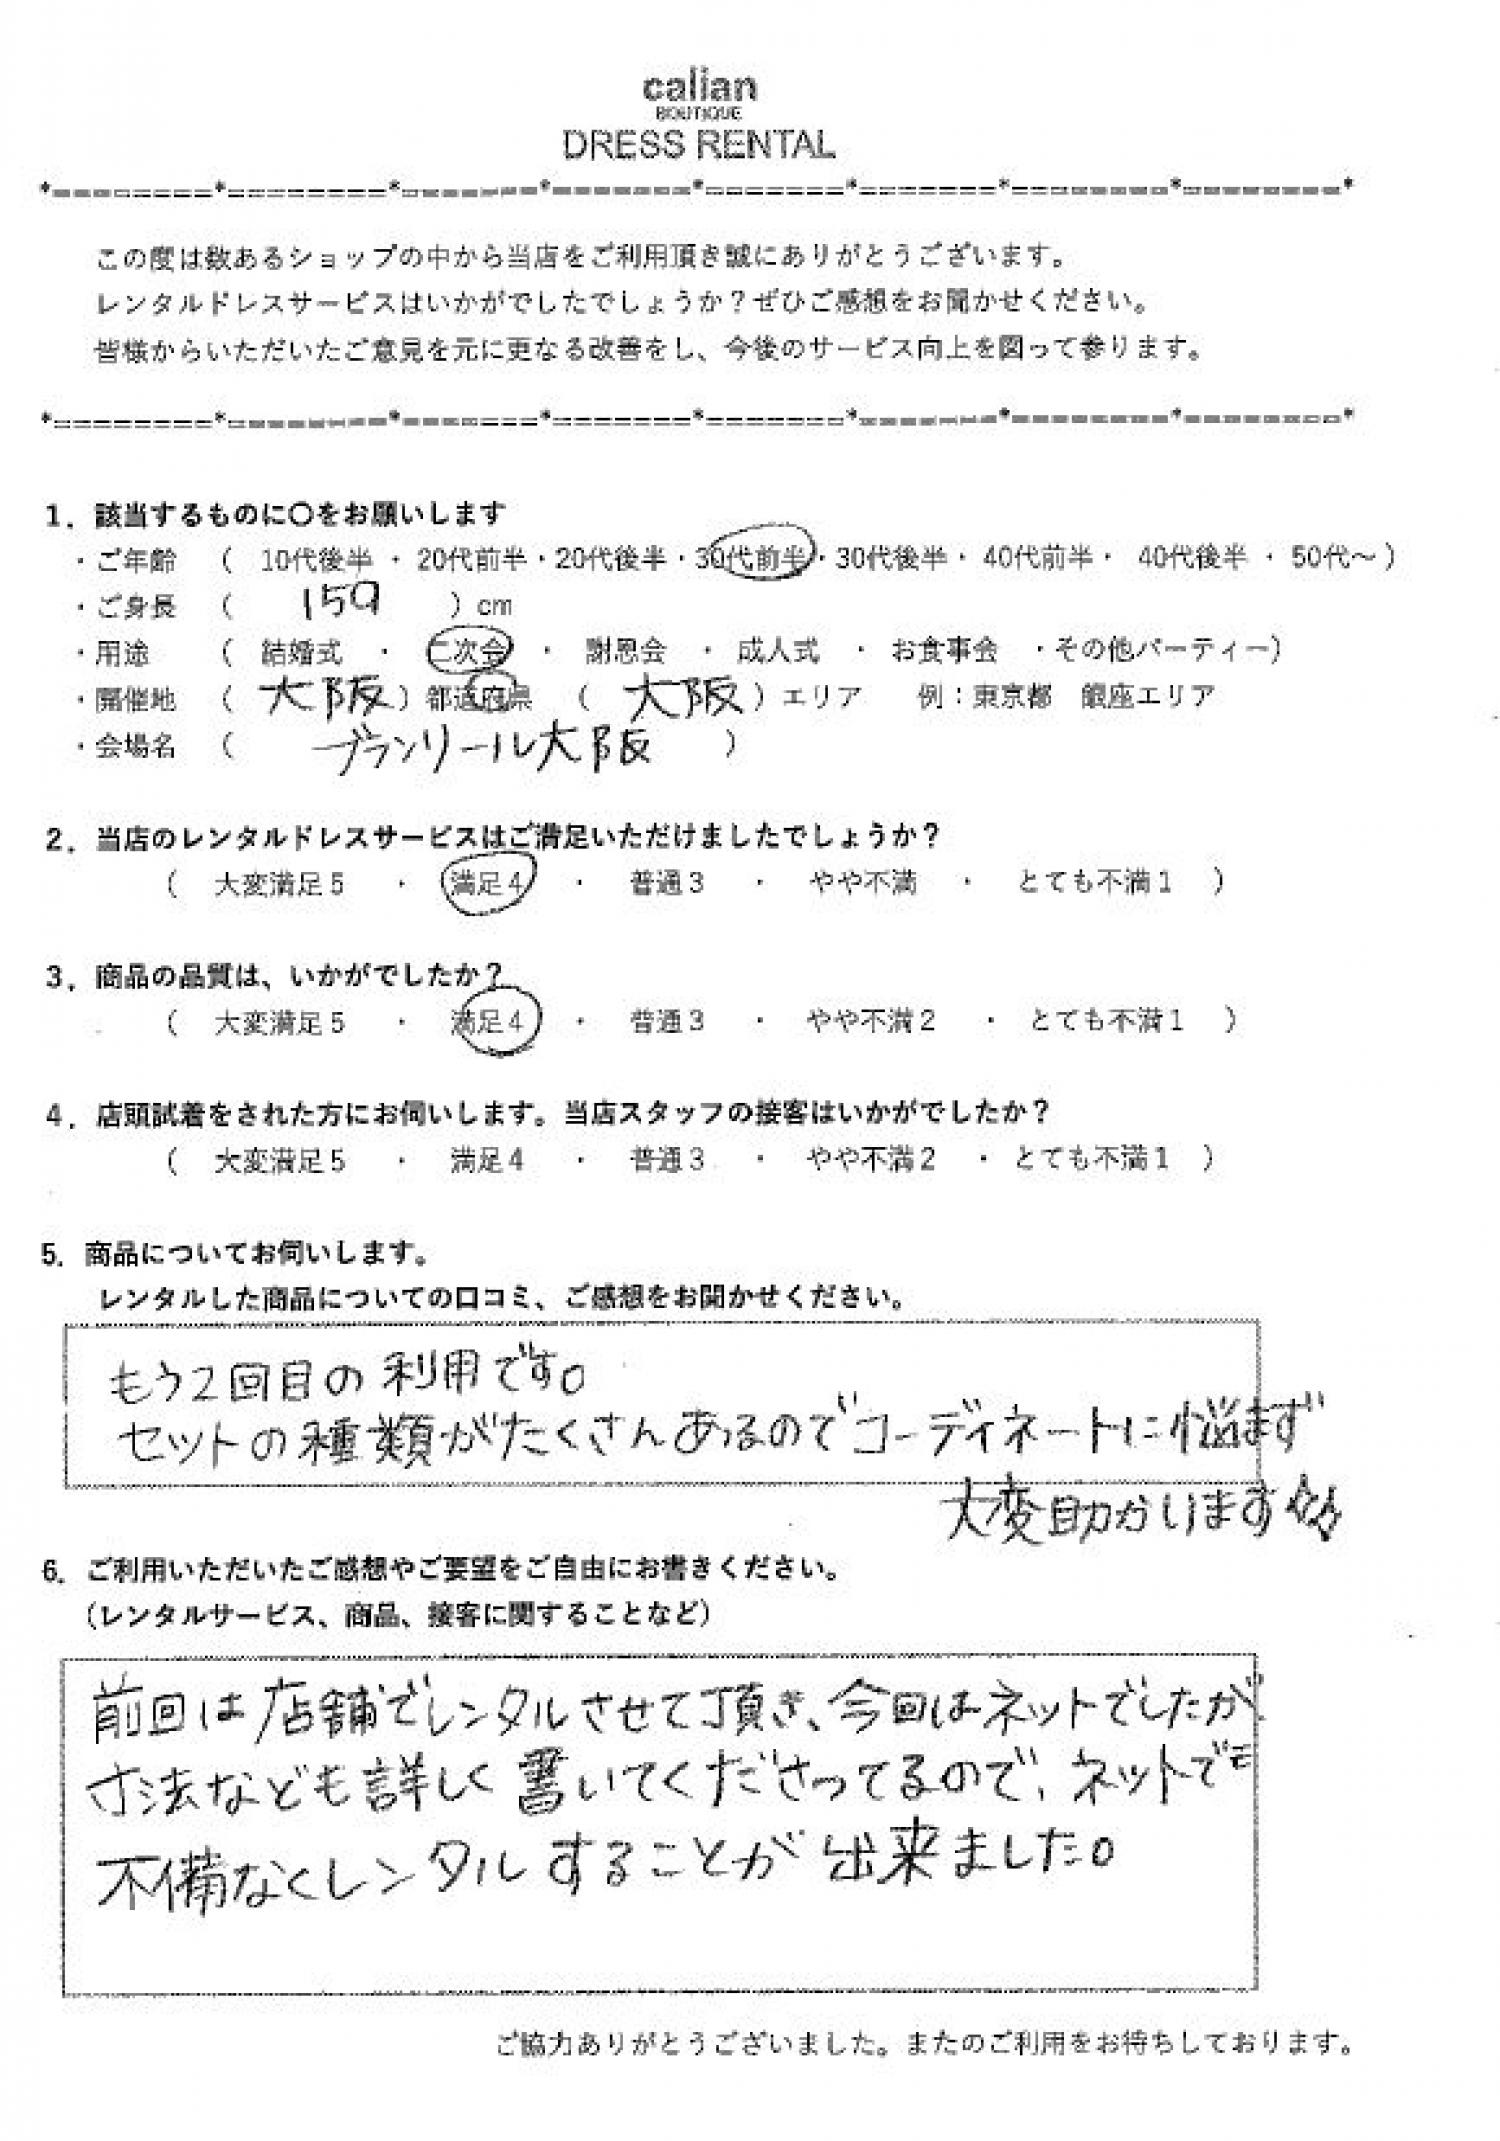 calian
BOUTIQUE
DRESS RENTAL
*========*========*=======*=======*=======*=======*========*========*
この度は数あるショップの中から当店をご利用頂き誠にありがとうございます。
レンタルドレスサービスはいかがでしたでしょうか？ぜひご感想をお聞かせください。
皆様からいただいたご意見を元に更なる改善をし、今後のサービス向上を図って参ります。
*========*========*=======*=======*=======*=======*========*========*
1．該当するものに〇をお願いします
・ご年齢 （ 10代後半 ・ 20代前半・20代後半・30代前半・30代後半・ 40代前半・ 40代後半 ・ 50代～）
・ご身長 （ 159 ）cm
・用途 （ 結婚式 ・ 二次会 ・ 謝恩会 ・ 成人式 ・ お食事会 ・その他パーティー）
・開催地 （ 大阪 ）都道府県 （ 大阪 ）エリア 例：東京都 銀座エリア
・会場名 （ ブランリール大阪 ）
2．当店のレンタルドレスサービスはご満足いただけましたでしょうか？
（ 大変満足５ ・ 満足４ ・ 普通３ ・ やや不満 ・ とても不満１ ）
3．商品の品質は、いかがでしたか？
（ 大変満足５ ・ 満足４ ・ 普通３ ・ やや不満２ ・ とても不満１ ）
4．店頭試着をされた方にお伺いします。当店スタッフの接客はいかがでしたか？
（ 大変満足５ ・ 満足４ ・ 普通３ ・ やや不満２ ・ とても不満１ ）
5．商品についてお伺いします。
レンタルした商品についての口コミ、ご感想をお聞かせください。
もう2回目の利用です。
セットの種類がたくさんあるのでコーディネートに悩まず
大変助かります☆☆
6．ご利用いただいたご感想やご要望をご自由にお書きください。
（レンタルサービス、商品、接客に関することなど）
前回は店舗でレンタルさせて頂き、今回はネットでしたが
寸法なども詳しく書いてくださってるので、ネットでも
不備なくレンタルすることが出来ました。
ご協力ありがとうございました。またのご利用をお待ちしております。